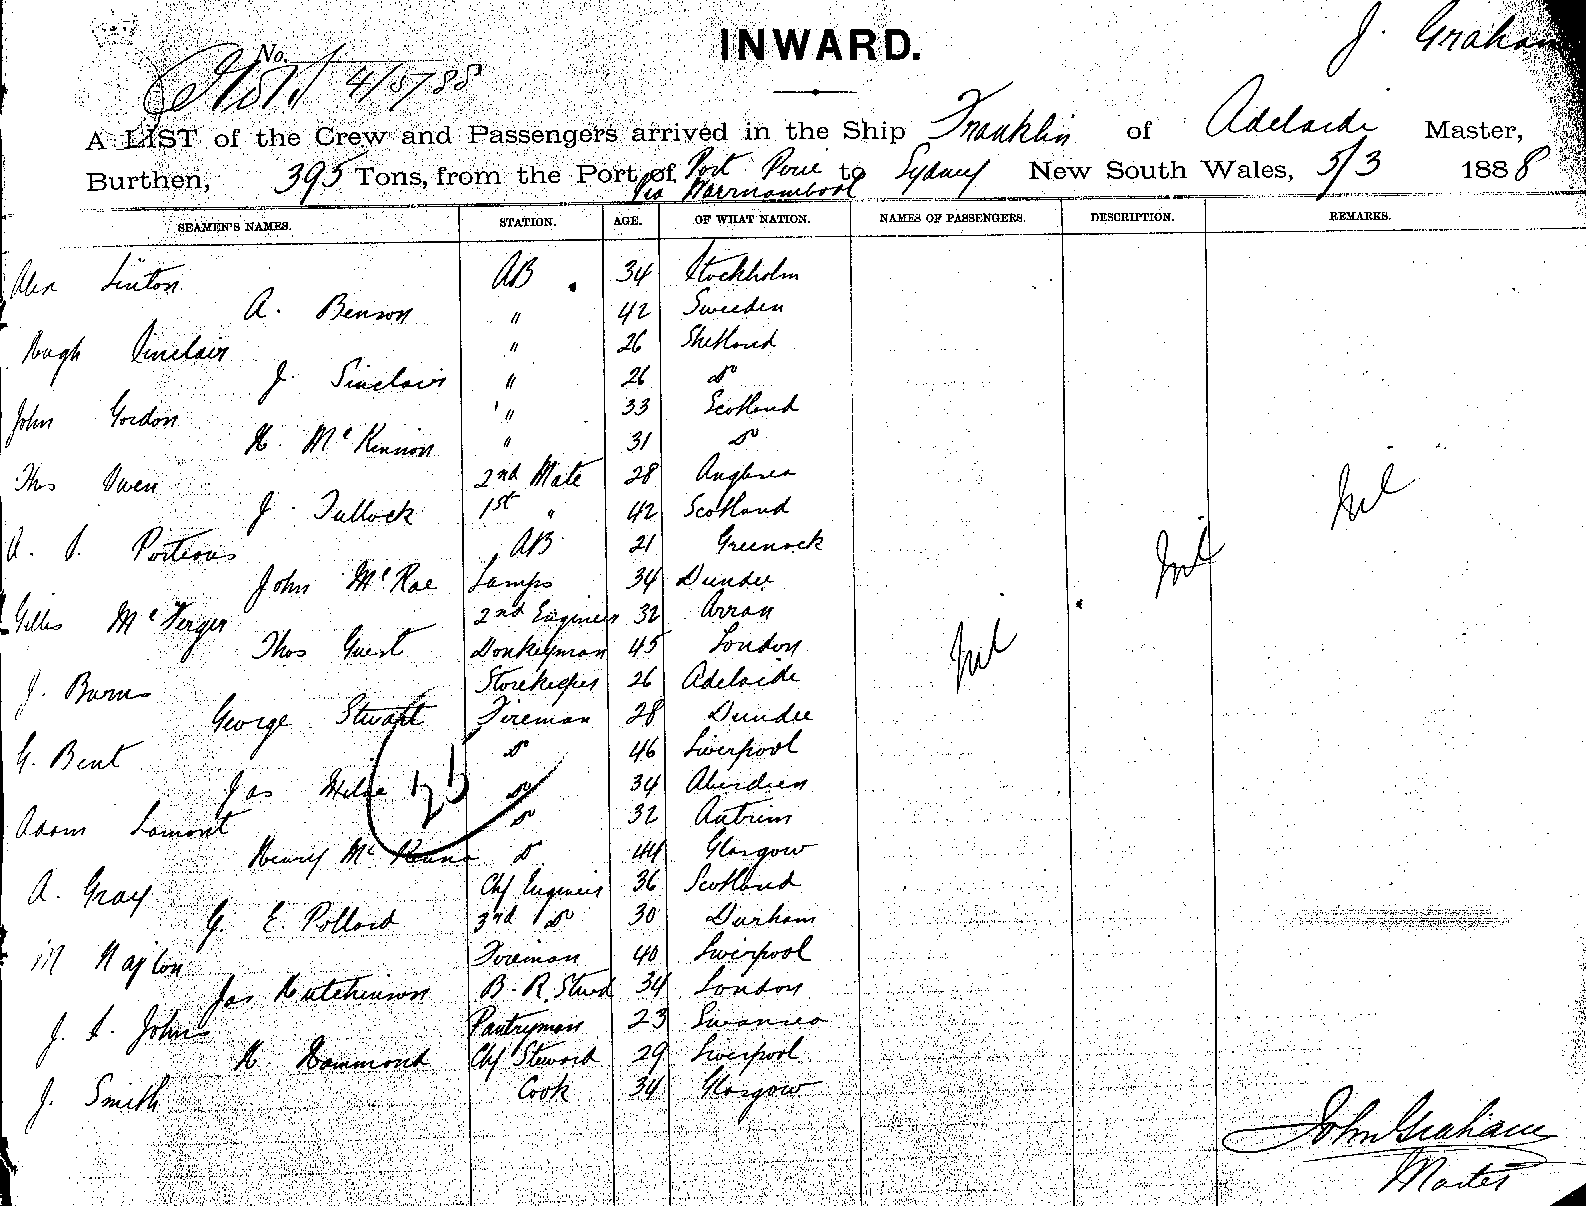 INWARD.
J. Graham
No.
4/5/88
A LIST of the Crew and Passengers arrived in the Ship Franklin of Adelaide Master,
Burthen, 395 Tons, from the Port of Port Pirie to Sydney New South Wales, 5/3 1888
Via Warrnambool
SEAMEN'S NAMES. STATION. AGE. OF WHAT NATION. NAMES OF PASSENGERS. DESCRIPTION. REMARKS.
Alex Linton AB 34 Stockholm
A. Benson " 42 Sweeden
Hugh Sinclair " 26 Shetland
J. Sinclair " 26 do
John Gordon " 33 Scotland
H. McKinnon " 31 do
Thos Owen 2nd Mate 28 Anglesea
J. Tullock 1st " 42 Scotland
A. Porteous AB 21 Greenock
John McRae Lamps 34 Dundee
Gilles 2nd Engineer 32 Arran
Thos Guest Donkeyman 45 London
J. Burns Storekeeper 26 Adelaide
George Stewart Fireman 28 Dundee
G. Bent do 46 Liverpool
Jas Milne do 34 Aberdeen
Adam Lamont do 32 Antrim
Henry Mc do 44 Glasgow
A. Gray Chf Engineer 36 Scotland
G. E. Pollard 3rd do 30 Durham
M Fireman 40 Liverpool
Jas Hutchinson B. R. Stwd 34 London
J. Johns Pantryman 23 Swansea
H. Hammond Chf Steward 29 Liverpool
J. Smith Cook 34 Glasgow
Nil
Nil
Nil
John Graham
Master